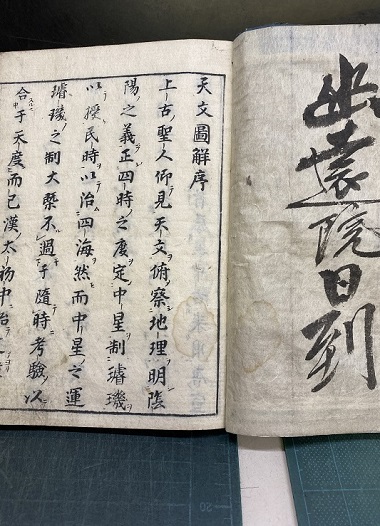 遠院日到
天文圖解序
上古聖人仰見天文俯察地理明陰
陽之義正四時之度定中星制璿璣
以授民時以治四海然而中星之運
璿璣之制大槩不過于隨時考驗以
合于天度而已漢太初中